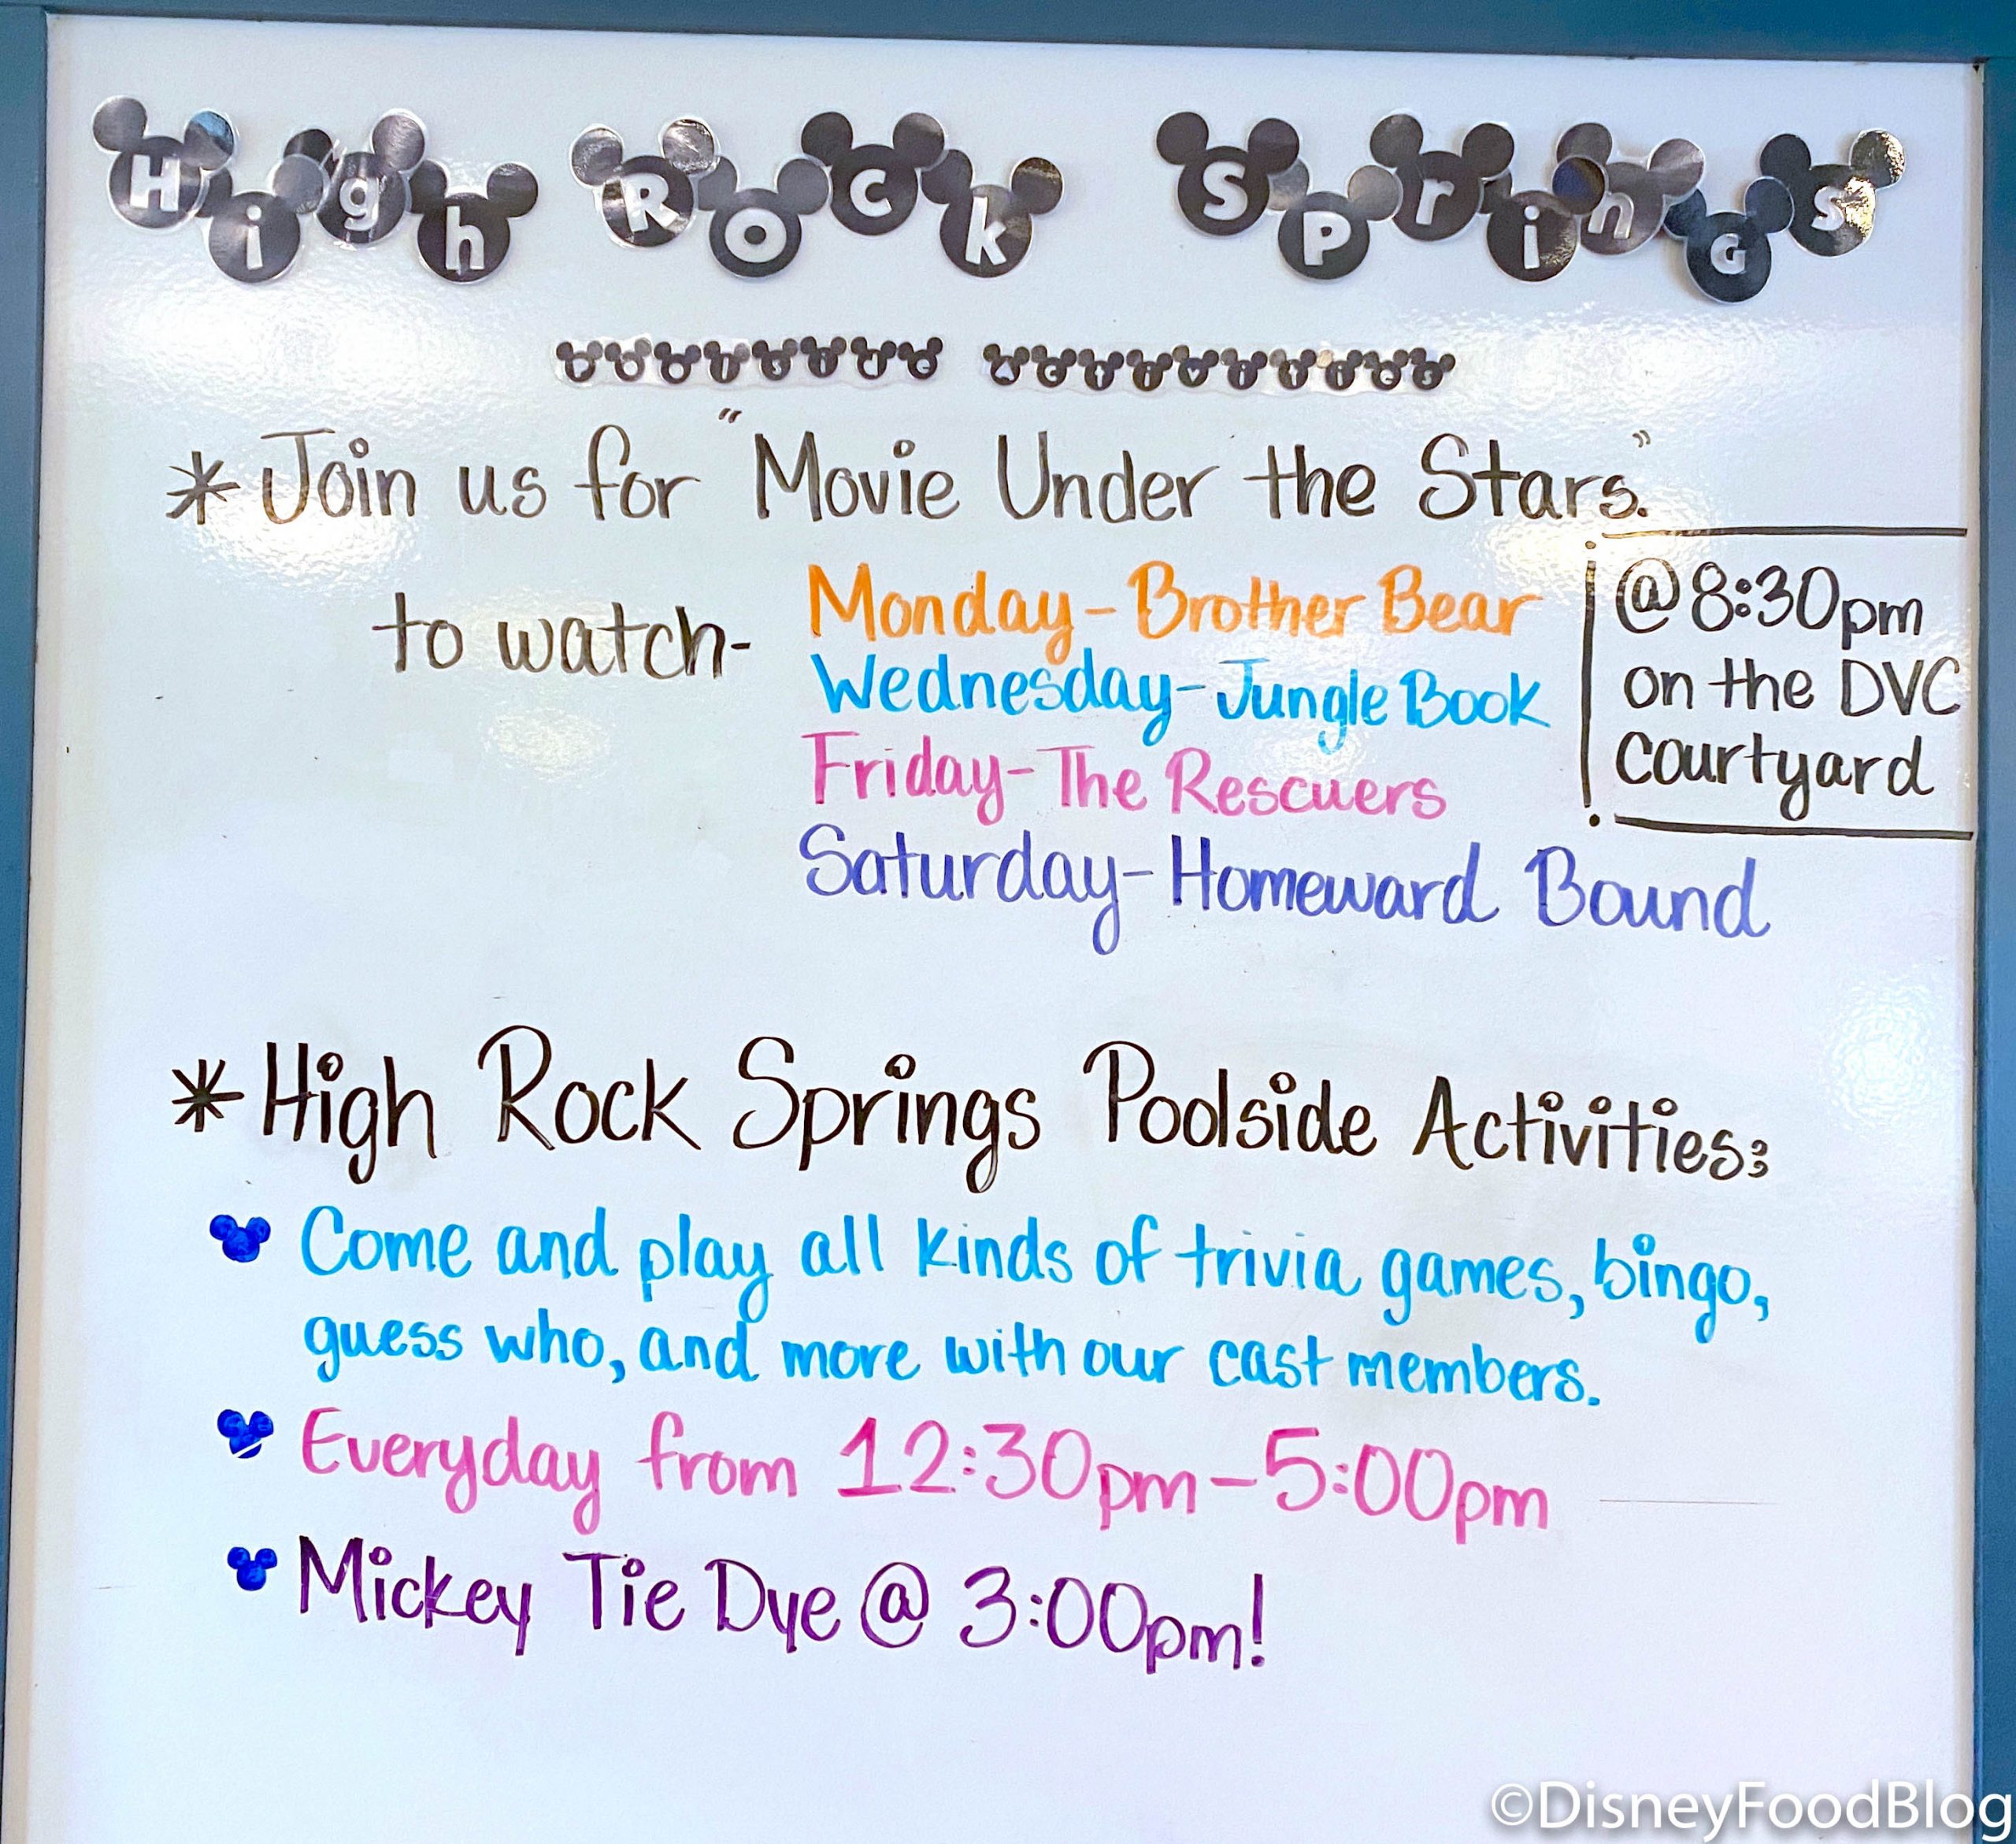 High ROCk SPrinGS
POOLSIDE ACTIVITIES
*Join us for "Movie Under the Stars."
to watch-
Monday-Brother Bear
Wednesday-Jungle Book
Friday-The Rescuers
Saturday-Homeward Bound
@8:30pm
on the DVC
courtyard
*High Rock Springs Poolside Activities:
Come and play all kinds of trivia games, bingo,
guess who, and more with our cast members.
Everyday from 12:30pm-5:00pm
Mickey Tie Dye @ 3:00pm!
©DisneyFoodBlog